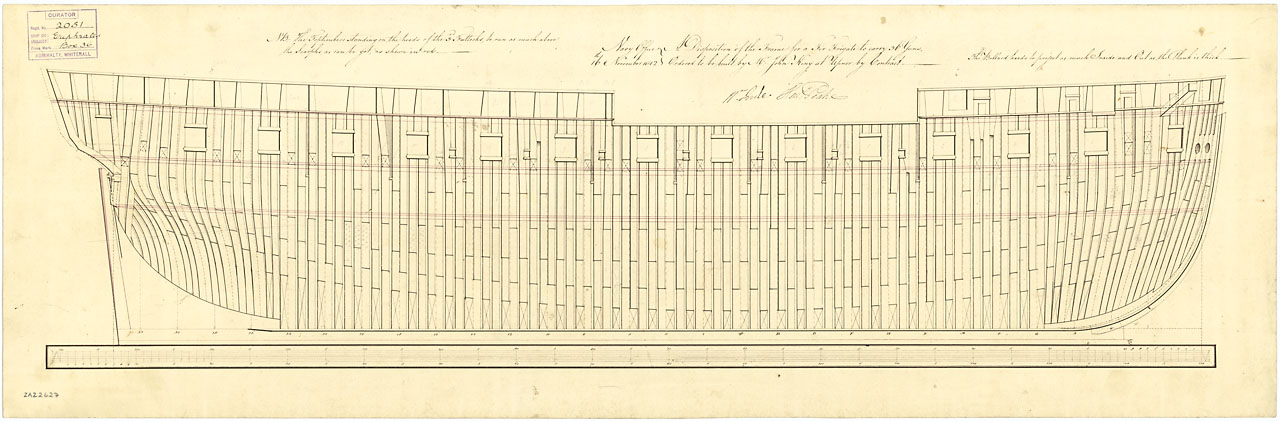 CURATOR
Regd No. 2051
Euphrates
Box 36
ADMIRALTY, WHITEHALL
NB. The Toptimbers standing on the heads of the 3d Futtocks, to run as much above
the Scarphs as can be got, as shewn in red.
Navy Office
16 November 1812
A Disposition of the Frame for a Fir Frigate to carry 36 Guns,
Ordered to be built by Mr. John King at Upnor by Contract.
The Bollard heads to project as much Inside and Out as the Plank is thick
ZAZ2627